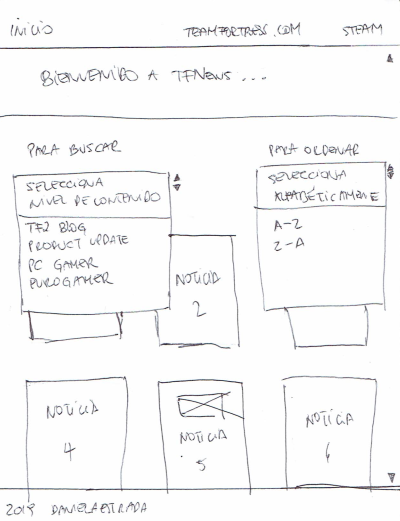 INICIO TEAMFORTRESS.COM STEAM
BIENVENIDO A TFNEWS ...
PARA BUSCAR
PARA ORDENAR
SELECCIONA
NIVEL DE CONTENIDO
TF2 BLOG
PRODUCT UPDATE
PC GAMER
EUROGAMER
SELECCIONA
ALFABÉTICAMENTE
A-Z
Z-A
NOTICIA
2
NOTICIA
4
NOTICIA
5
NOTICIA
6
2019 DANIELA ESTRADA